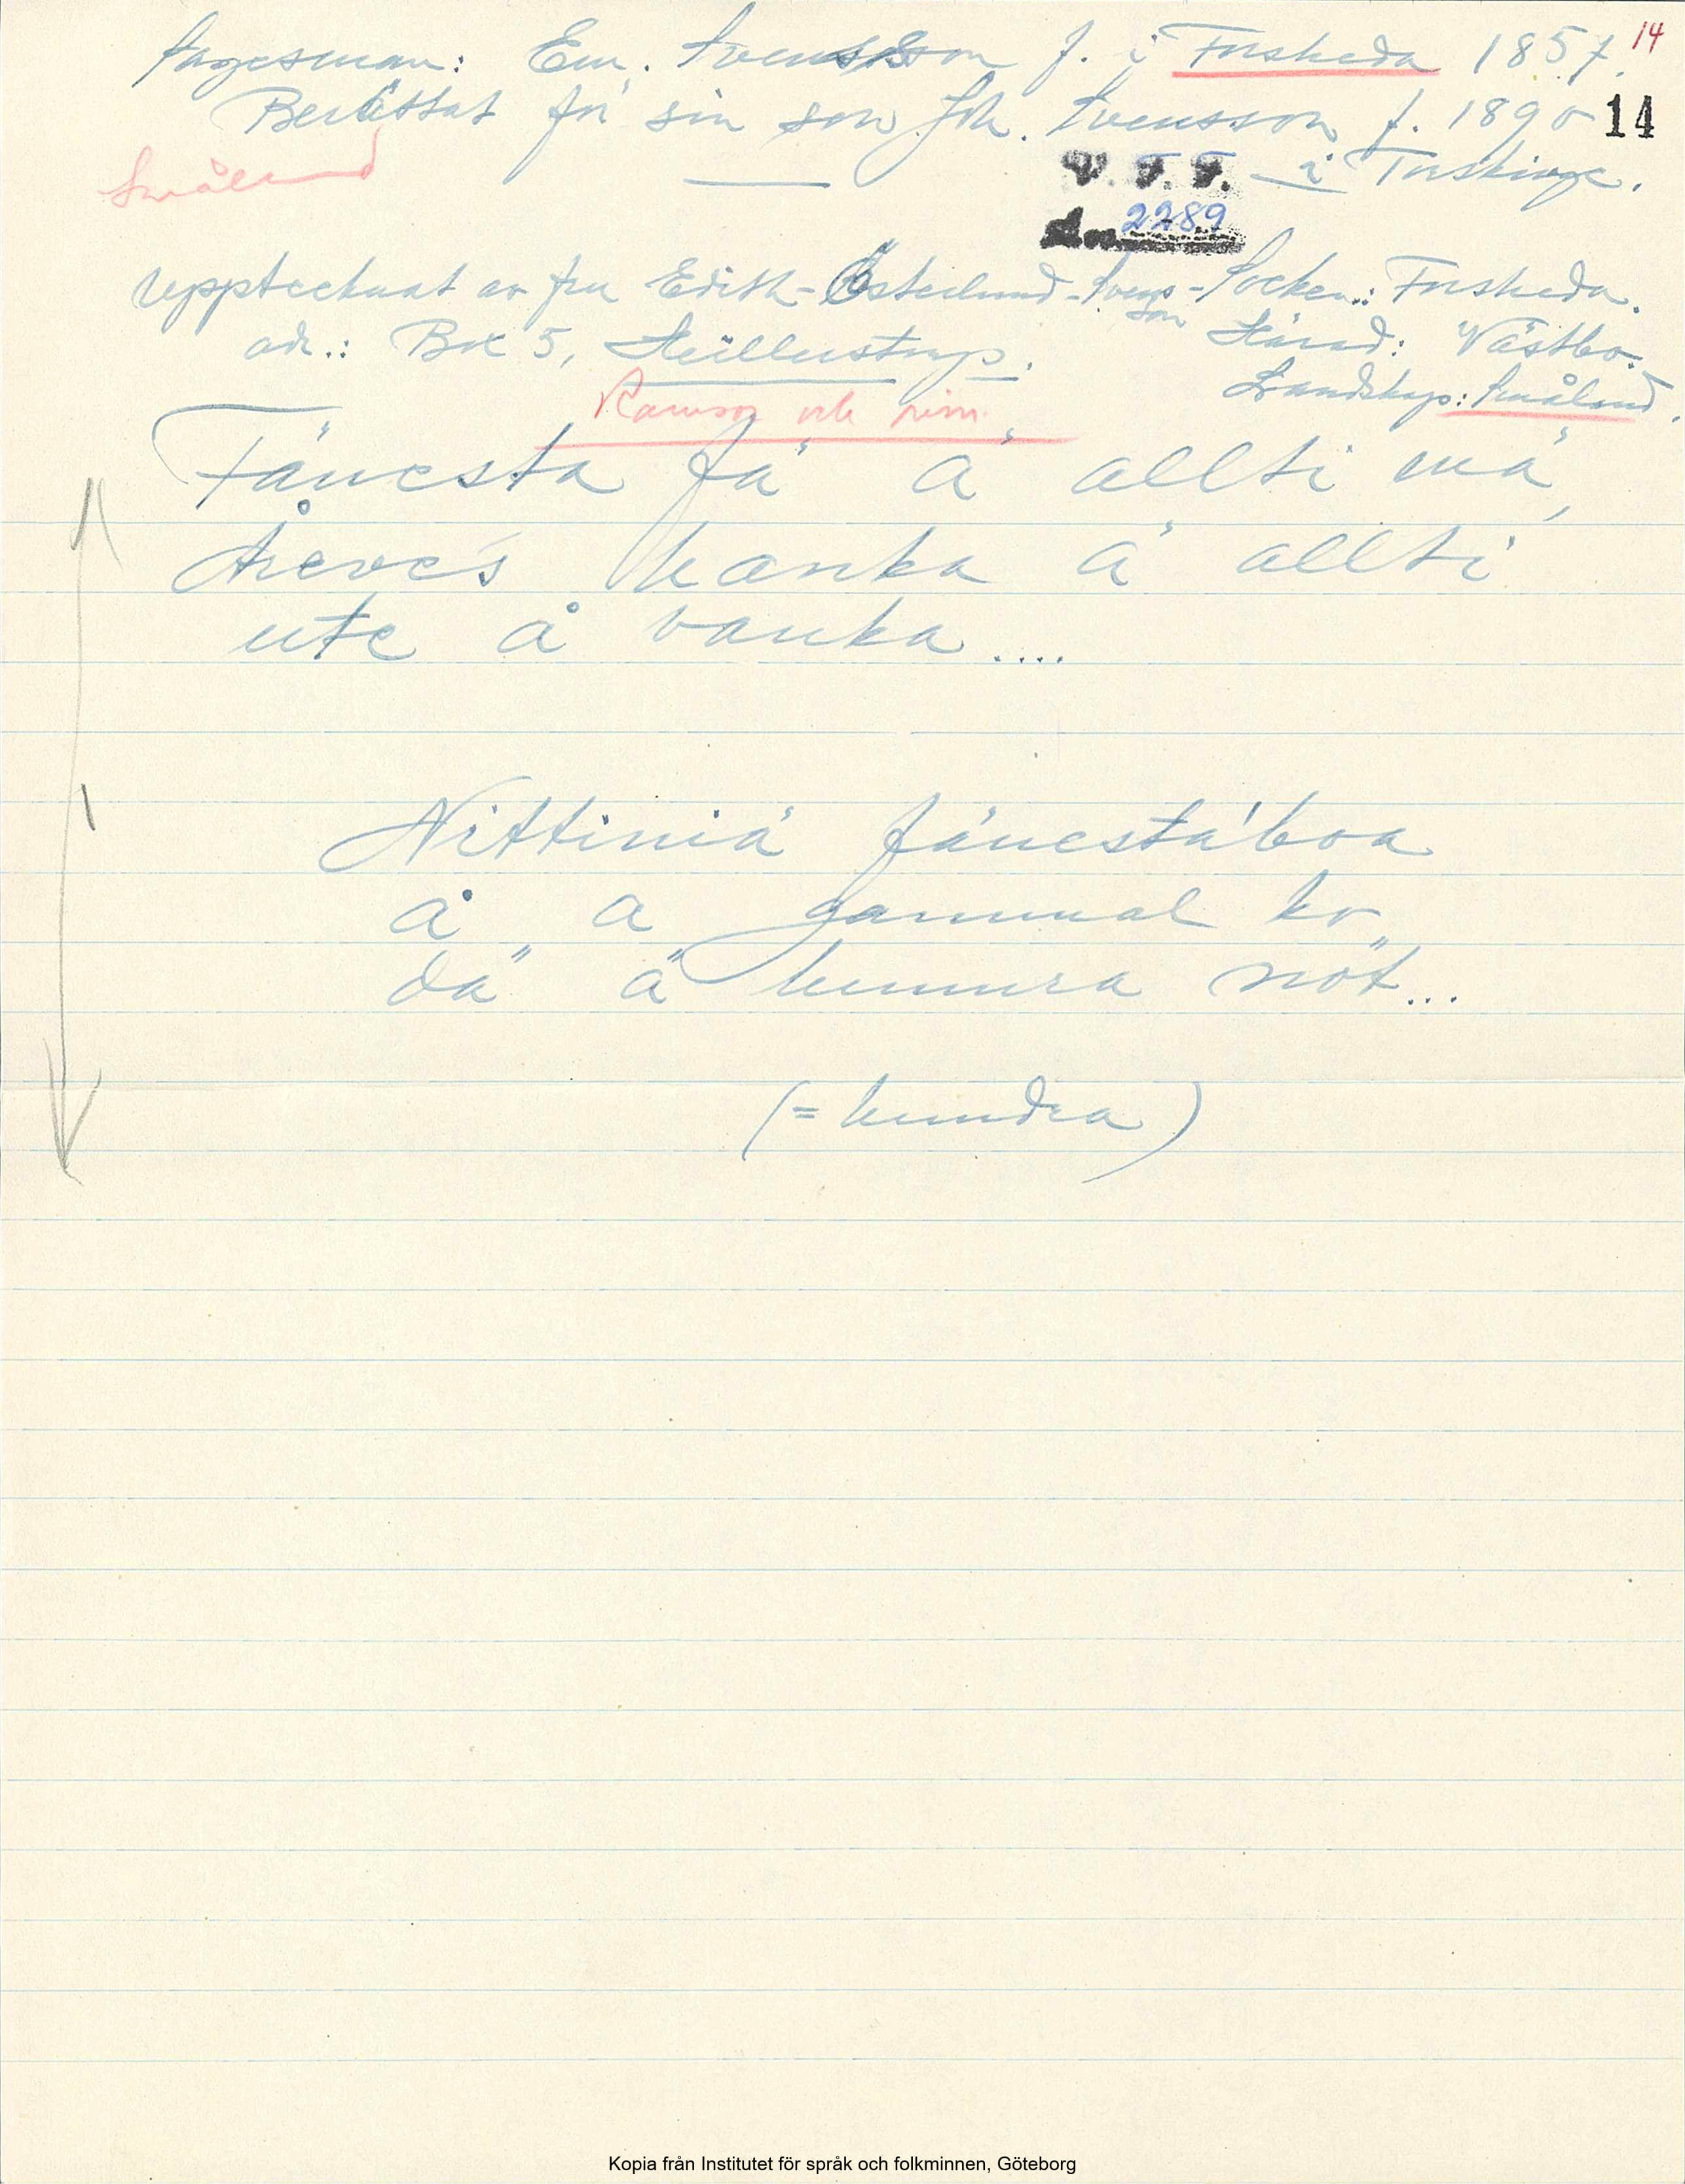 14
Sagesman: Em. Svensson f. i Forsheda 1857.
Berättat för sin son Joh. Svensson f. 1890
14
i Torskinge.
Småland
V. F. F.
2289
Upptecknat av fru Edith Österlund-Svensson
adr.: Box 5, Hillerstorp.
Socken: Forsheda.
Härad: Västbo.
Landskap: Småland.
Ramsor och rim.
Fänesta fä ä allti mä,
Åreves hanka ä allti
ute å vanka....
Nittiniä fänestaboa
å a gammal ko
dä ä hunnra nöt...
(= hundra)
Kopia från Institutet för språk och folkminnen, Göteborg